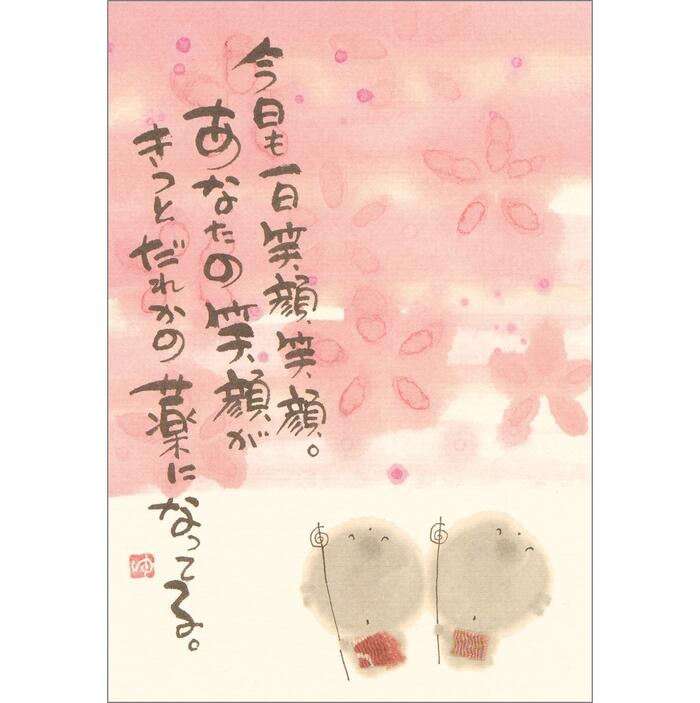 今日も一日笑顔、笑顔。
あなたの笑顔が
きっとだれかの薬になってる。
ゆ